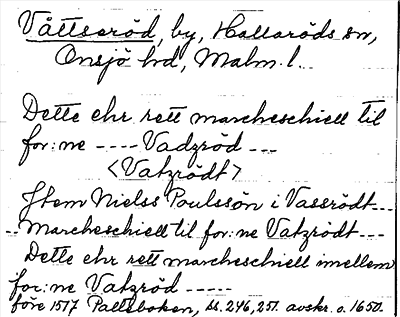 Våttseröd, by, Hallaröds sn,
Onsjö hd, Malm. l.
Dette ehr rett marcheschiell til
for:ne ---- Vadzröd ---
<Vatzrödt>
Jtem Nielss Poulssön i Vassrödt---
--marcheschiell til for:ne Vatzrödt---
Dette ehr rett marcheschiell imellem
for:ne Vatzröd -----
före 1517 Palteboken, ss. 246, 251. avskr. o. 1650.